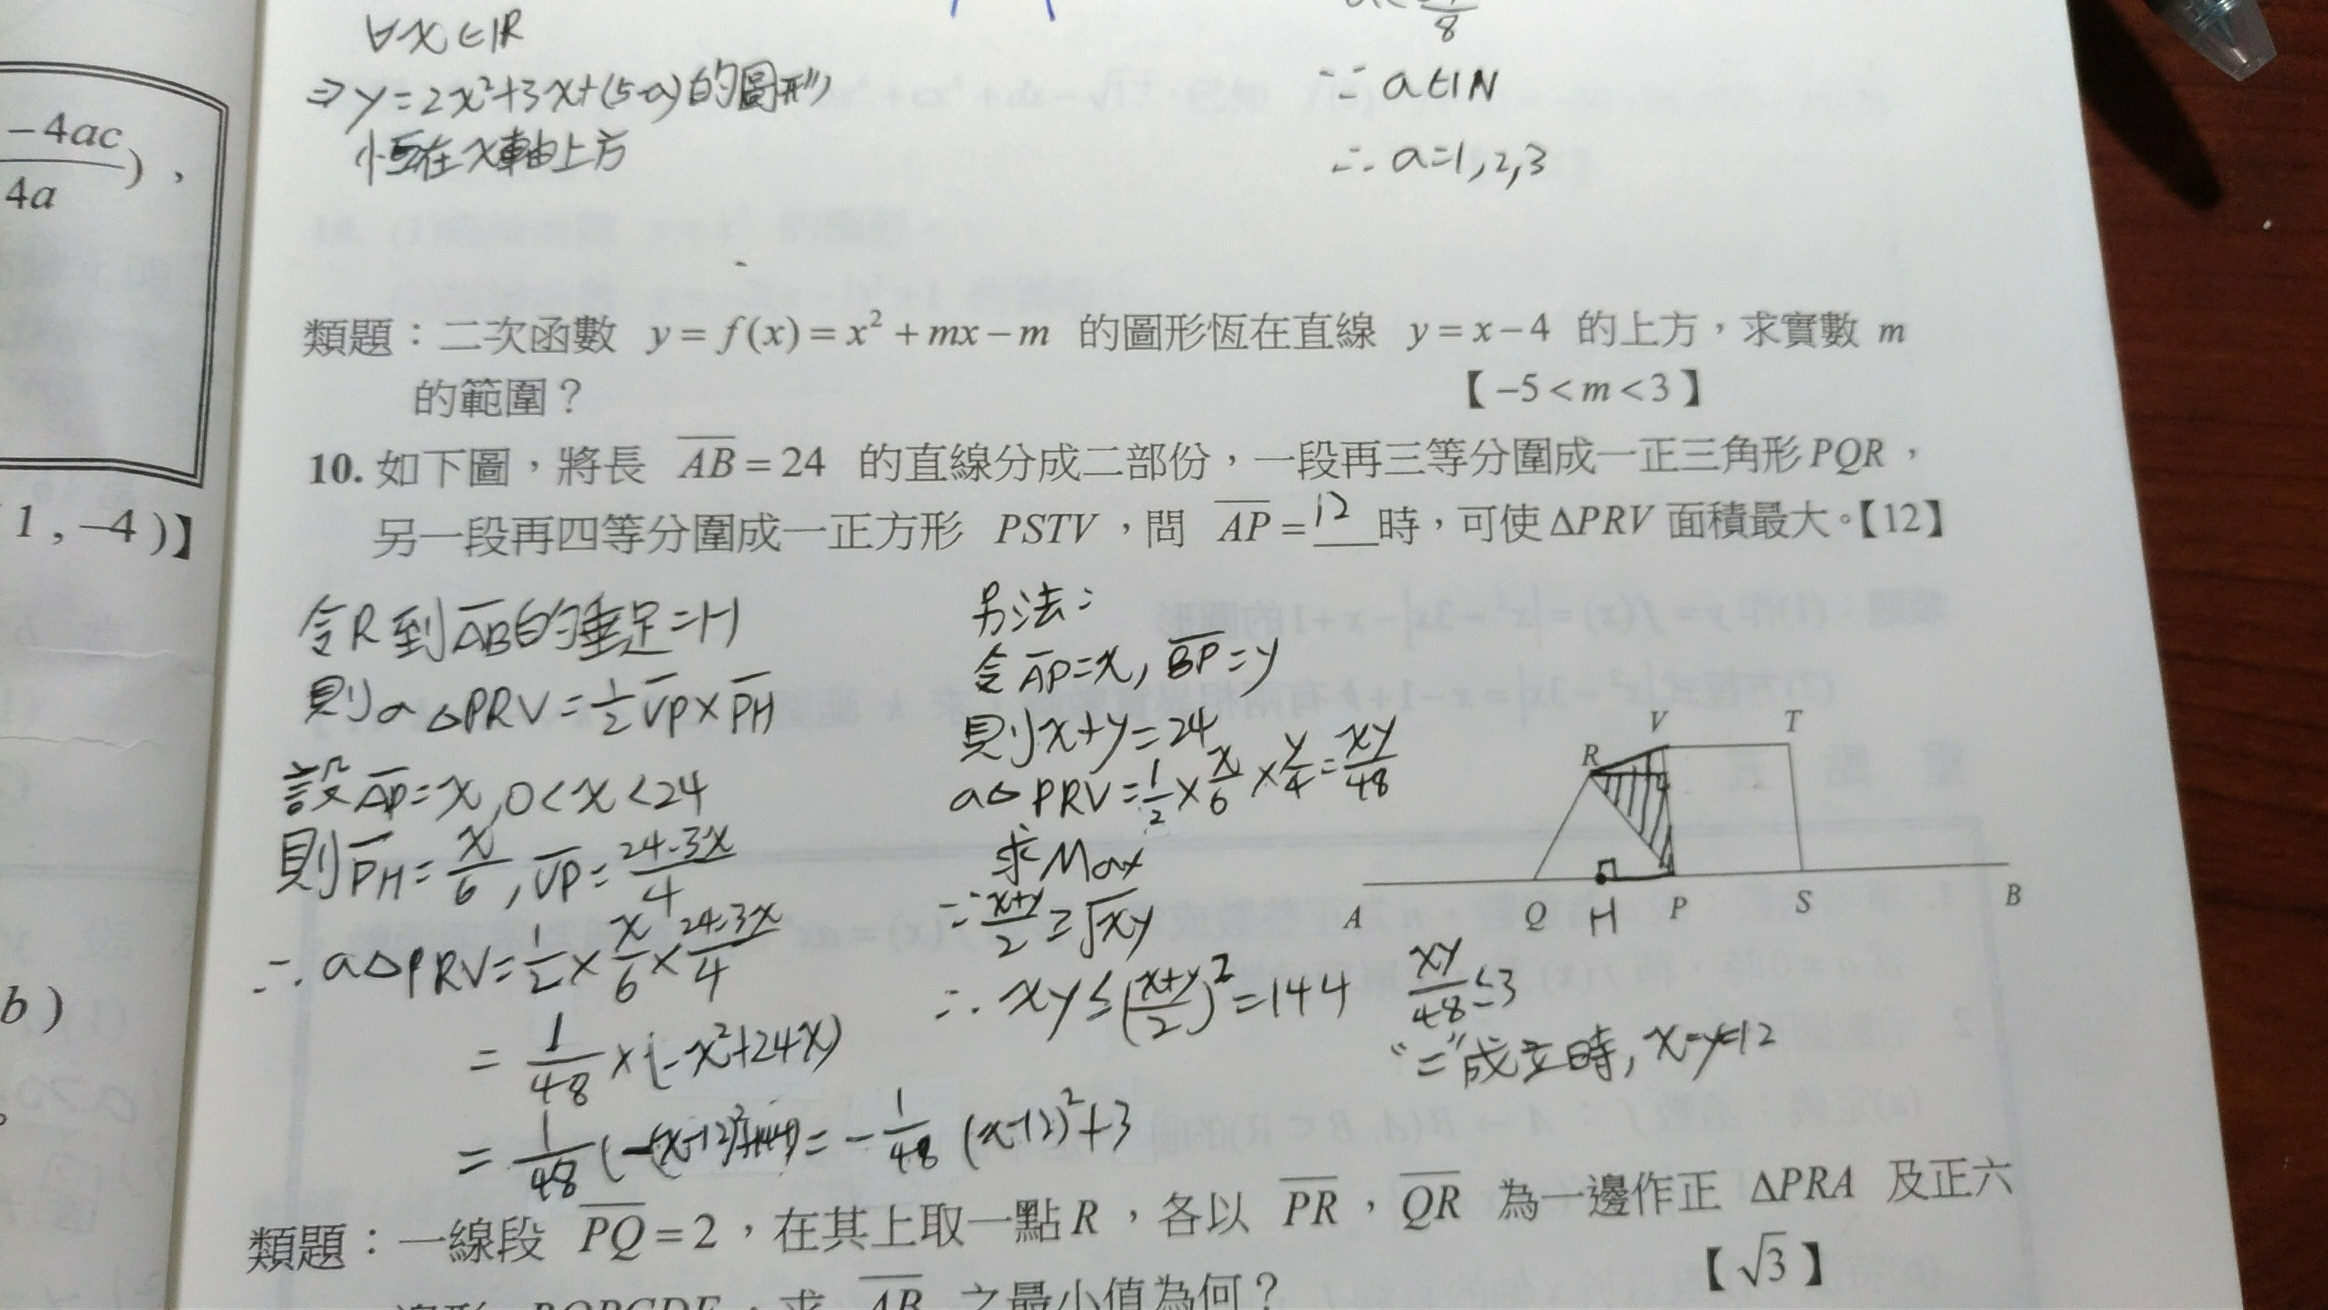 ∀x∈ℝ
⇒y=2x²+3x+(5-a)的圖形
恆在x軸上方
8
∵ a∈ℕ
∴ a=1,2,3
-4ac
4a
),
1,-4)】
b)
類題：二次函數 y=f(x)=x²+mx-m 的圖形恆在直線 y=x-4 的上方，求實數 m
的範圍？ 【-5<m<3】
10. 如下圖，將長 \overline{AB}=24 的直線分成二部份，一段再三等分圍成一正三角形PQR，
另一段再四等分圍成一正方形 PSTV，問 \overline{AP}=12時，可使ΔPRV面積最大。【12】
令R到\overline{AB}的垂足=H
則a△PRV=\frac{1}{2}\overline{VP}×\overline{PH}
設\overline{AP}=x, 0<x<24
則\overline{PH}=\frac{x}{6}, \overline{VP}=\frac{24-3x}{4}
∴ a△PRV=\frac{1}{2}×\frac{x}{6}×\frac{24-3x}{4}
=\frac{1}{48}×(-x²+24x)
=\frac{1}{48}(-(x-12)²+144)=-\frac{1}{48}(x-12)²+3
另法：
令\overline{AP}=x, \overline{BP}=y
則x+y=24
a△PRV=\frac{1}{2}×\frac{x}{6}×\frac{y}{4}=\frac{xy}{48}
求Max
∵\frac{x+y}{2}≥\sqrt{xy}
∴ xy≤(\frac{x+y}{2})²=144 \frac{xy}{48}≤3
"="成立時, x=y=12
V T
R
A Q H P S B
類題：一線段 \overline{PQ}=2，在其上取一點R，各以 \overline{PR}，\overline{QR} 為一邊作正 ΔPRA 及正六
【√3】
邊形 \overline{AB} 之最小值為何？